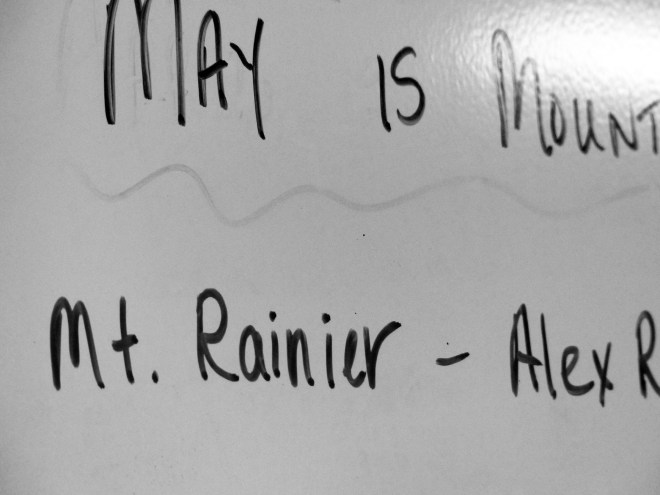 MAY IS MOUNT
Mt. Rainier - Alex R